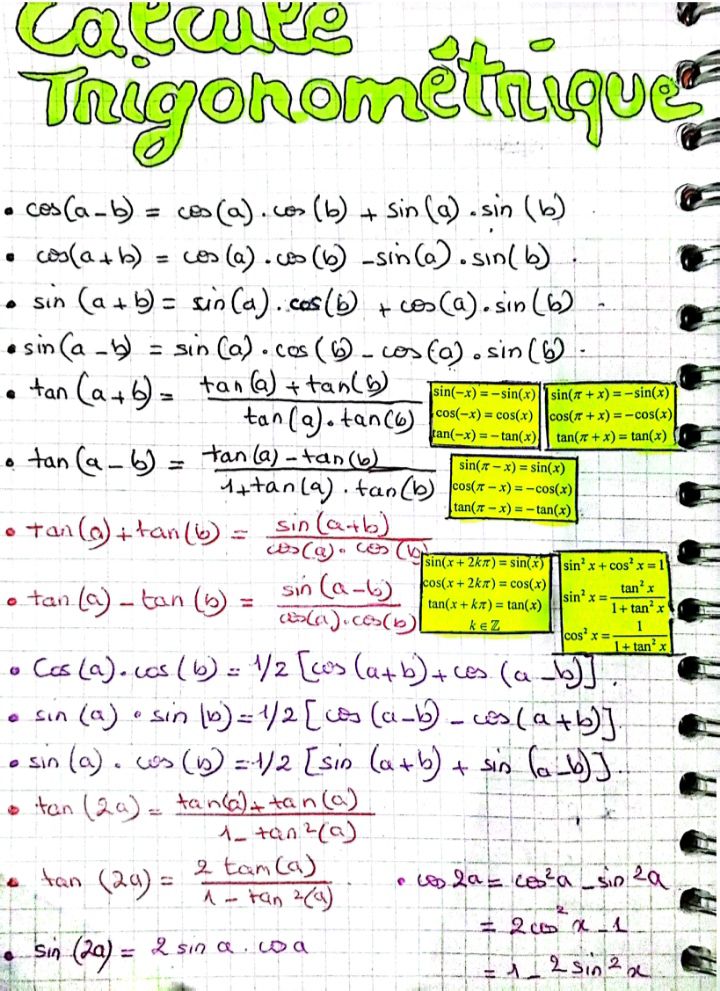 Calcule
Trigonométrique
• cos(a-b) = cos(a).cos(b) + sin(a).sin(b)
• cos(a+b) = cos(a).cos(b) - sin(a).sin(b).
• sin(a+b) = sin(a).cos(b) + cos(a).sin(b)
• sin(a-b) = sin(a).cos(b) - cos(a).sin(b).
• tan(a+b) = tan(a)+tan(b)
tan(a).tan(b)
sin(-x) = -sin(x)
cos(-x) = cos(x)
tan(-x) = -tan(x)
sin(π + x) = -sin(x)
cos(π + x) = -cos(x)
tan(π + x) = tan(x)
• tan(a-b) = tan(a)-tan(b)
1+tan(a).tan(b)
sin(π - x) = sin(x)
cos(π - x) = -cos(x)
tan(π - x) = -tan(x)
• tan(a)+tan(b) = sin(a+b)
cos(a).cos(b)
• tan(a)-tan(b) = sin(a-b)
cos(a).cos(b)
sin(x + 2kπ) = sin(x)
cos(x + 2kπ) = cos(x)
tan(x + kπ) = tan(x)
k ∈ ℤ
sin² x + cos² x = 1
sin² x = tan² x
1 + tan² x
cos² x = 1
1 + tan² x
• Cos(a).cos(b) = 1/2 [cos(a+b)+cos(a-b)].
• sin(a).sin(b) = 1/2 [cos(a-b) - cos(a+b)].
• sin(a).cos(b) = 1/2 [sin(a+b) + sin(a-b)].
• tan(2a) = tan(a)+tan(a)
1- tan²(a)
• tan(2a) = 2 tan(a)
1 - tan²(a)
• sin(2a) = 2 sin a . cos a
• cos 2a = cos²a - sin²a
= 2cos²x - 1
= 1 - 2 sin²x